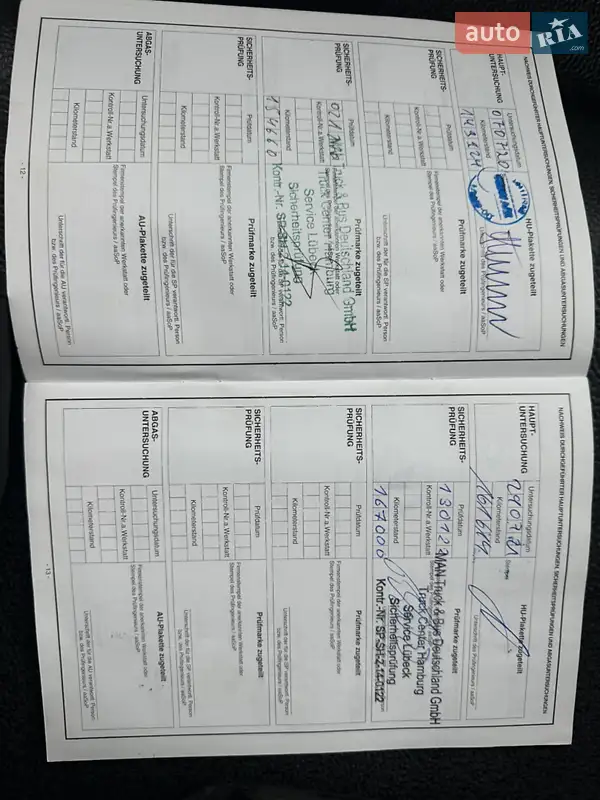 auto RIA.com
NACHWEIS DURCHGEFÜHRTER HAUPTUNTERSUCHUNGEN, SICHERHEITSPRÜFUNGEN UND ABGASUNTERSUCHUNGEN
HAUPT-
UNTERSUCHUNG
Untersuchungsdatum
Kilometerstand
HU-Plakette zugeteilt
Unterschrift des
Prüfingenieurs / aaSoP
SICHERHEITS-
PRÜFUNG
Prüfdatum
Kontroll-Nr.a.Werkstatt
Kilometerstand
Prüfmarke zugeteilt
Firmenstempel der anerkannten Werkstatt oder
Stempel des Prüfingenieurs / aaSoP
Unterschrift der für die SP verantwortl. Person
bzw. des Prüfingenieurs / aaSoP
SICHERHEITS-
PRÜFUNG
Prüfdatum
Kontroll-Nr.a.Werkstatt
Kilometerstand
134660
Truck & Bus Deutschland GmbH
Truck Center Hamburg
Service Lübeck
Sicherheitsprüfung
Kontr.-Nr. SP-SH-Z-14-0122
Prüfmarke zugeteilt
SICHERHEITS-
PRÜFUNG
Prüfdatum
Kontroll-Nr.a.Werkstatt
Kilometerstand
Prüfmarke zugeteilt
Firmenstempel der anerkannten Werkstatt oder
Stempel des Prüfingenieurs / aaSoP
Unterschrift der für die SP verantwortl. Person
bzw. des Prüfingenieurs / aaSoP
ABGAS-
UNTERSUCHUNG
Untersuchungsdatum
Kontroll-Nr.a.Werkstatt
Kilometerstand
AU-Plakette zugeteilt
Firmenstempel der anerkannten Werkstatt oder
Stempel des Prüfingenieurs / aaSoP
Unterschrift der für die AU verantwortl. Person
bzw. des Prüfingenieurs / aaSoP
- 12 -
NACHWEIS DURCHGEFÜHRTER HAUPTUNTERSUCHUNGEN, SICHERHEITSPRÜFUNGEN UND ABGASUNTERSUCHUNGEN
HAUPT-
UNTERSUCHUNG
Untersuchungsdatum
290721
Kilometerstand
HU-Plakette zugeteilt
Unterschrift des Prüfingenieurs / aaSoP
SICHERHEITS-
PRÜFUNG
Prüfdatum
Kontroll-Nr.a.Werkstatt
Kilometerstand
167000
Prüfmarke zugeteilt
MAN Truck & Bus Deutschland GmbH
Truck Center Hamburg
Service Lübeck
Sicherheitsprüfung
Kontr.-Nr. SP-SH-Z-14-0122
SICHERHEITS-
PRÜFUNG
Prüfdatum
Kontroll-Nr.a.Werkstatt
Kilometerstand
Prüfmarke zugeteilt
Firmenstempel der anerkannten Werkstatt oder
Stempel des Prüfingenieurs / aaSoP
Unterschrift der für die SP verantwortl. Person
bzw. des Prüfingenieurs / aaSoP
SICHERHEITS-
PRÜFUNG
Prüfdatum
Kontroll-Nr.a.Werkstatt
Kilometerstand
Prüfmarke zugeteilt
Firmenstempel der anerkannten Werkstatt oder
Stempel des Prüfingenieurs / aaSoP
Unterschrift der für die SP verantwortl. Person
bzw. des Prüfingenieurs / aaSoP
ABGAS-
UNTERSUCHUNG
Untersuchungsdatum
Kontroll-Nr.a.Werkstatt
Kilometerstand
AU-Plakette zugeteilt
Firmenstempel der anerkannten Werkstatt oder
Stempel des Prüfingenieurs / aaSoP
Unterschrift der für die AU verantwortl. Person
bzw. des Prüfingenieurs / aaSoP
- 13 -